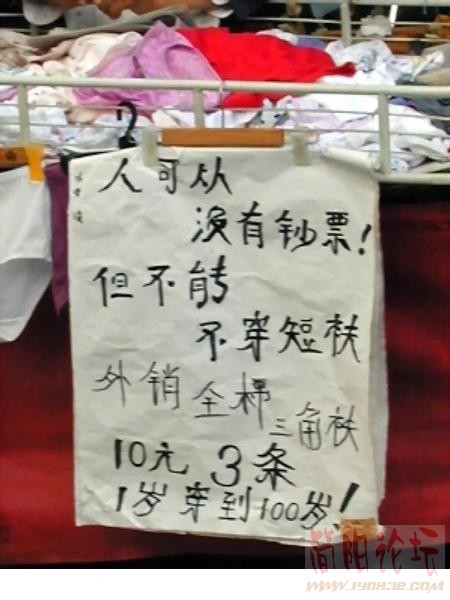 人可从
没有钞票!
但不能
不穿短衭
外销全棉三角衭
10元 3条
1岁穿到100岁!
简阳论坛
WWW.JY0832.COM